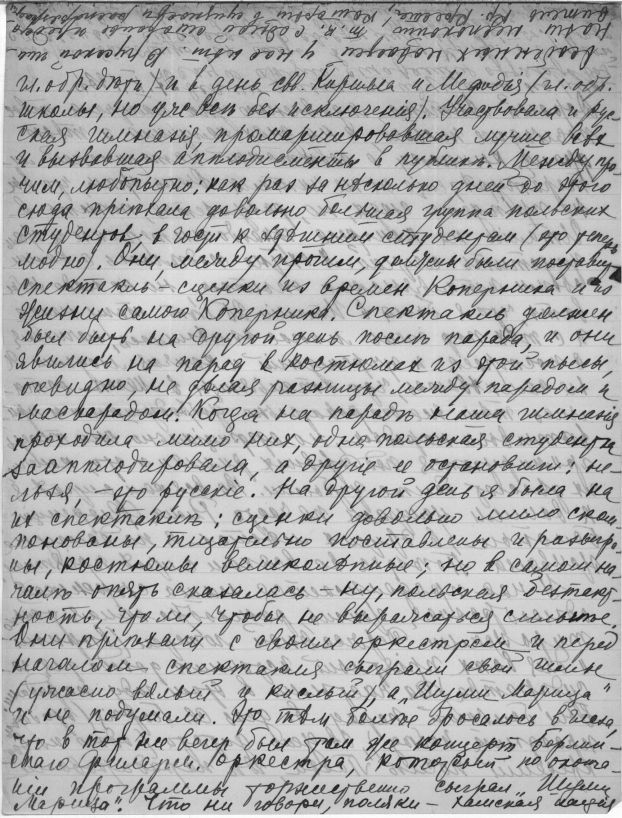 гл. обр. дѣти) и въ день свв. Кирилла и Меѳодія (гл. обр.
школы, но уже всѣ безъ исключенія). Участвовала и рус-
ская гимназія, промаршировавшая лучше всѣхъ
и вызвавшая апплодисменты в публикѣ. Между про-
чим, любопытно: как раз за нѣсколько дней до этого
сюда пріѣхала довольно большая группа польских
студентов, в гости к здѣшним студентам (это теперь
модно). Они, между прочим, должны были поставить
спектакль – сценки из времен Коперника и из
жизни самого Коперника. Спектакль должен
был быть на другой день послѣ парада, и они
явились на парад в костюмах из этой пьесы,
очевидно не дѣлая разницы между парадом и
маскарадом. Когда на парадѣ наша гимназія
проходила мимо них, одна польская студентка
заапплодировала, а другіе ее остановили: не-
льзя, – это русскіе. На другой день я была на
их спектаклѣ: сценки довольно мило ском-
понованы, тщательно поставлены и разыгра-
ны, костюмы великолѣпные; но в самом на-
чалѣ опять сказалась – ну, польская безтакт-
ность, что ли, чтобы не выражаться сильнѣе.
Они пріѣхали с своим оркестром и перед
началом спектакля сыграли свой гимн
(ужасно вялый и кислый), а „Шуми Марица"
и не подумали. Это тѣм болѣе бросалось в глаза,
что в тот же вечер был там же концерт Берлин-
скаго филарм. оркестра, который по оконча-
ніи программы торжественно сыграл „Шуми
Марица". Что ни говори, поляки – хамская нація